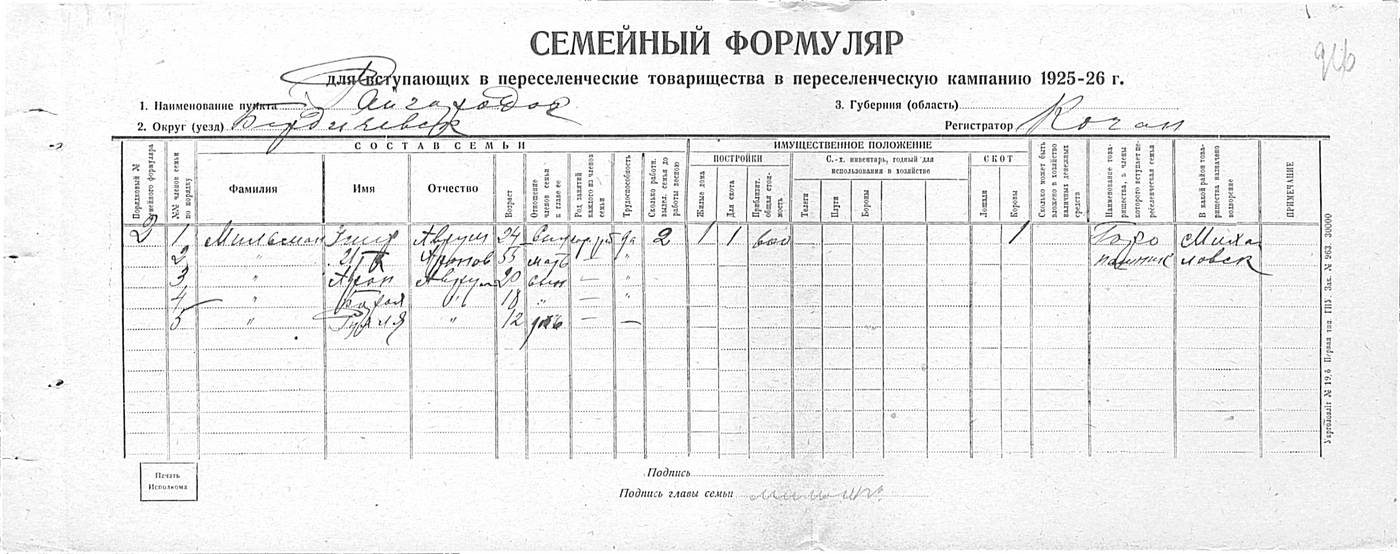 СЕМЕЙНЫЙ ФОРМУЛЯР
для вступающих в переселенческие товарищества в переселенческую кампанию 1925-26 г.
1. Наименование пункта Райгородок 3. Губерния (область)
2. Округ (уезд) Бердичевск Регистратор Коган
СОСТАВ СЕМЬИ ИМУЩЕСТВЕННОЕ ПОЛОЖЕНИЕ
ПОСТРОЙКИ С.-х. инвентарь, годный для использования в хозяйстве СКОТ
Порядковый № семейного формуляра №№ членов семьи по порядку Фамилия Имя Отчество Возраст Отношение членов семьи к главе ее Род занятий каждого из членов семьи Трудоспособность Сколько работн. выдел. семья до работы весною Жилые дома Для скота Приблизит. общая стоимость Телеги Плуги Бороны Лошади Коровы Сколько может быть вложено в хозяйство наличных денежных средств Наименование товарищества, в члены которого вступает переселенческая семья В какой район товарищества назначено водворение ПРИМЕЧАНИЕ
2 1 Мильман Аврум 24 да 2 1 1 600 1 Миха
2 " 55 мать — " ловск
3 " Арон Аврум 20 сын — "
4 " " 18 " — "
5 " " 12 — —
Печать Исполкома
Подпись
Подпись главы семьи
Укрголовліт № 19,6 Первая тип. ГПУ. Зак. № 963. 30000